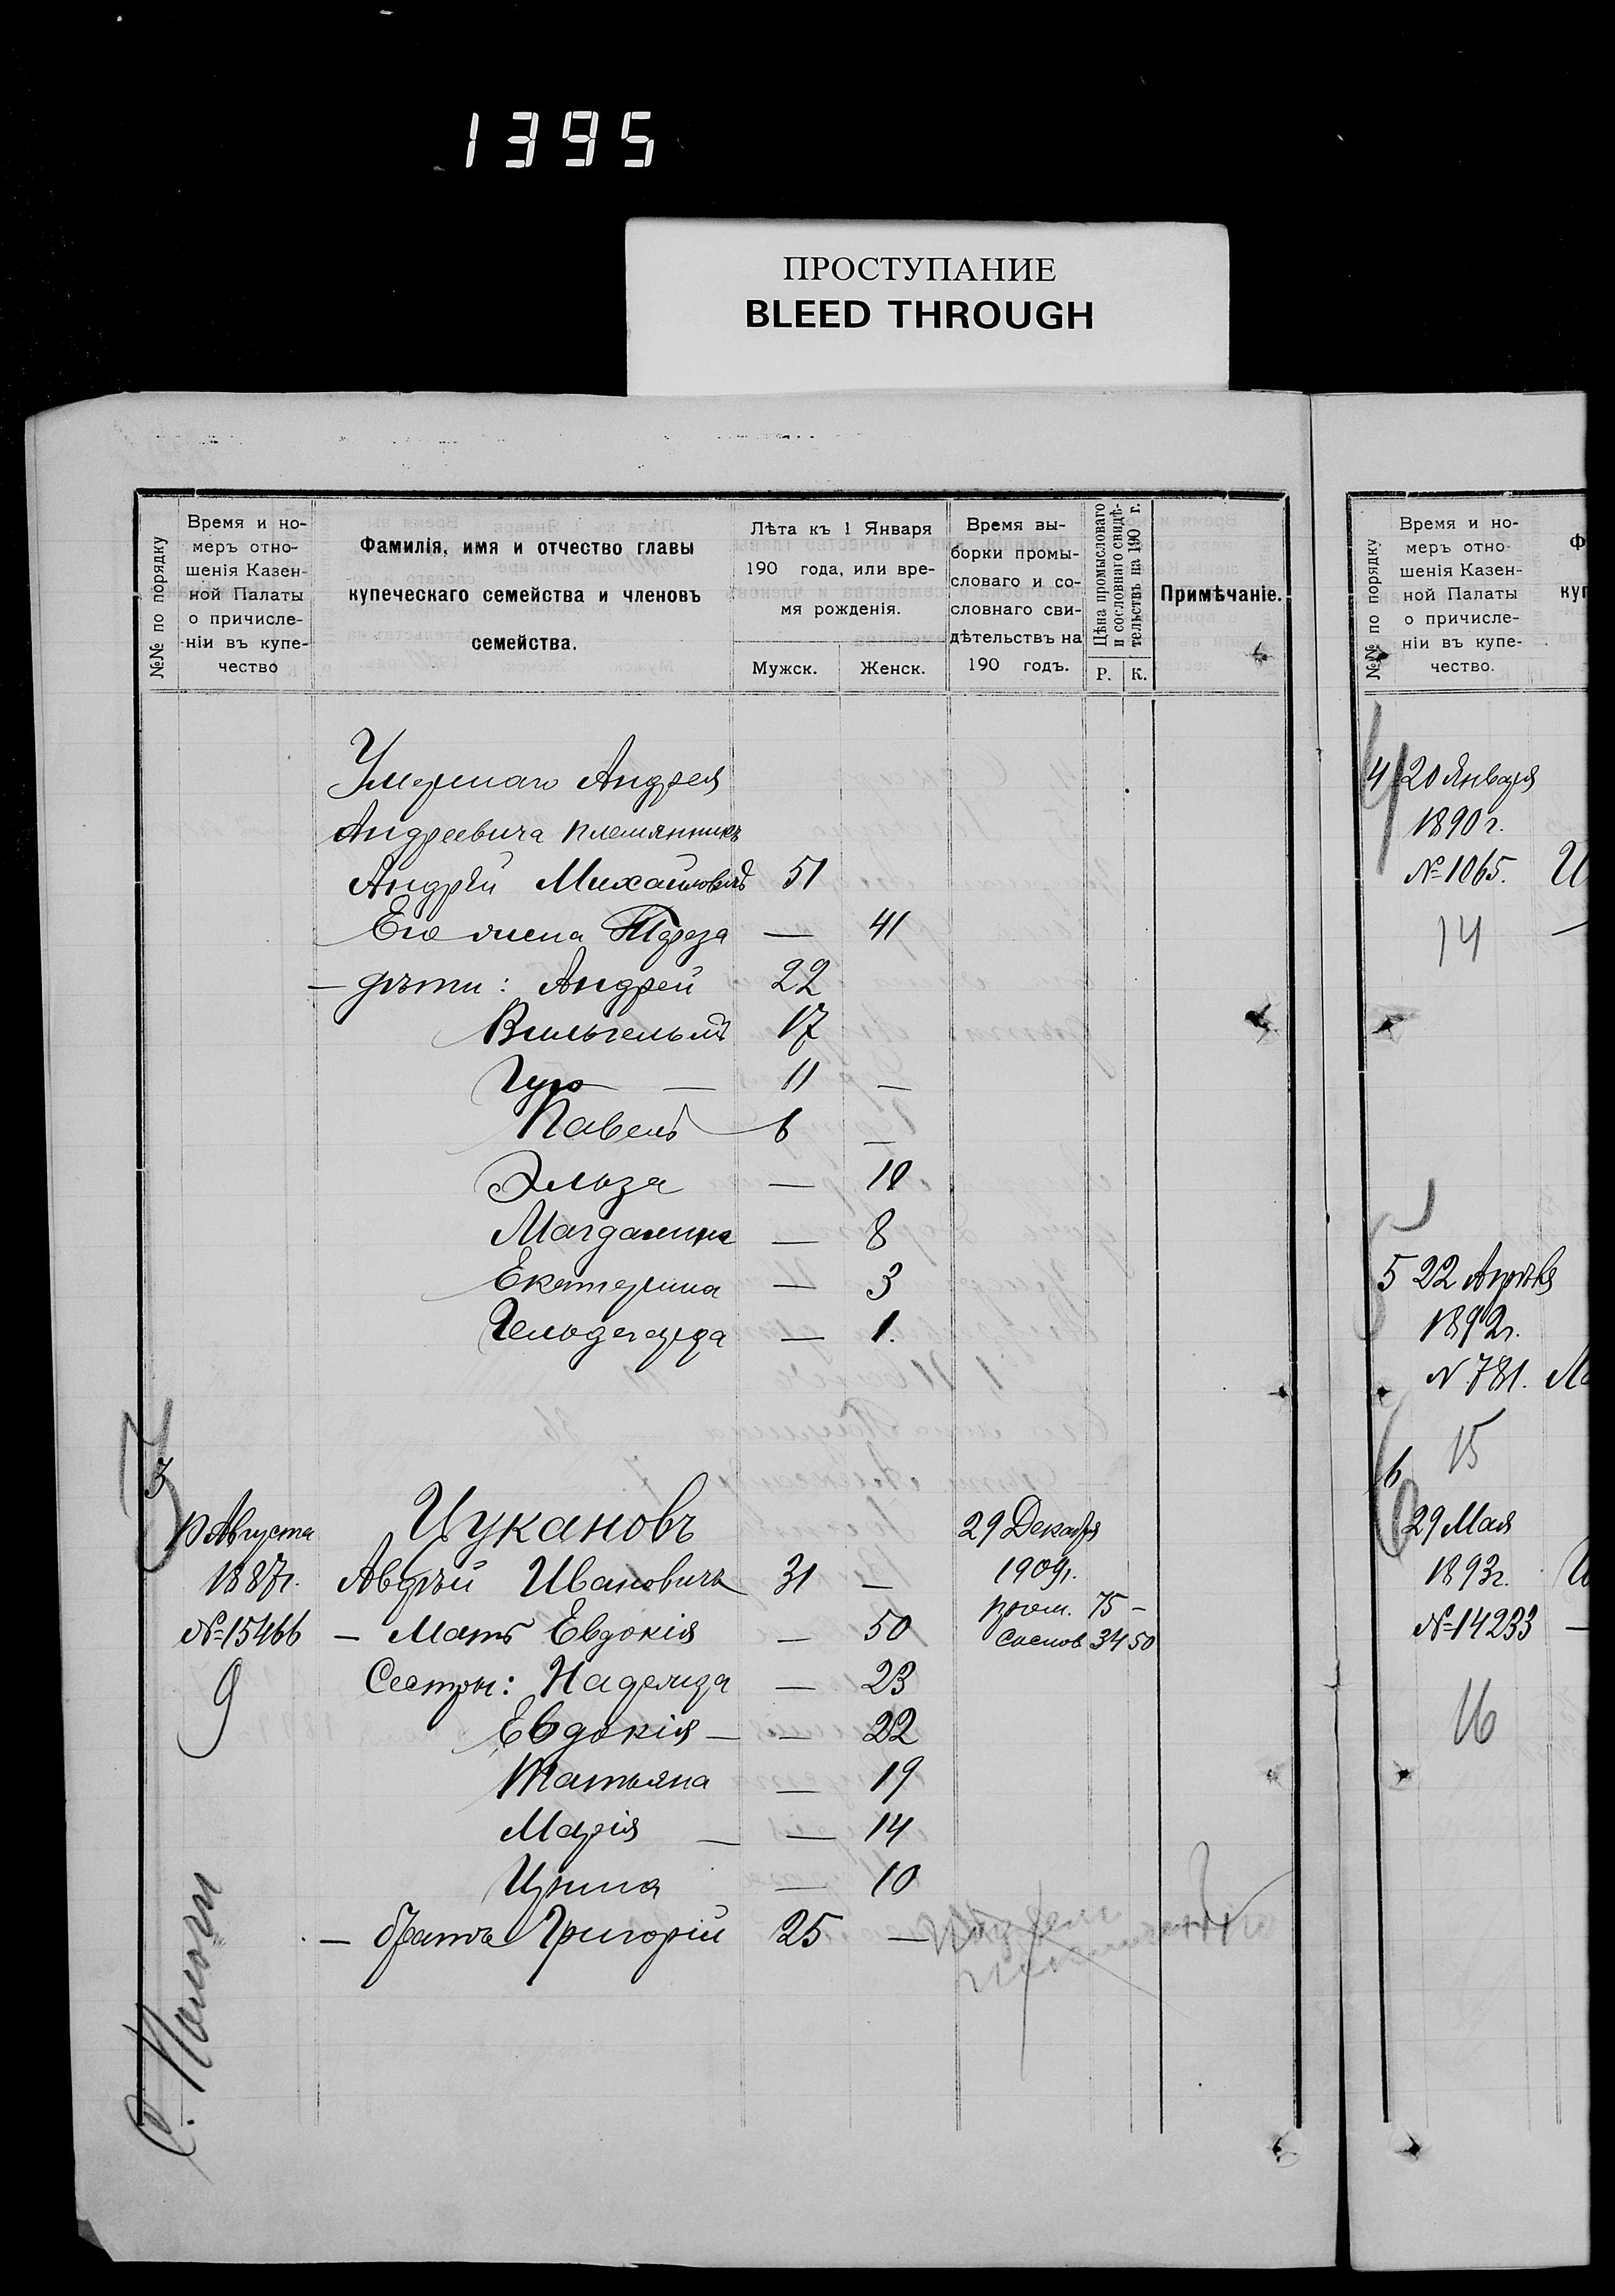 1395
ПРОСТУПАНИЕ
BLEED THROUGH
№№ по порядку
Время и но-
меръ отно-
шенія Казен-
ной Палаты
о причисле-
ніи въ купе-
чество
Фамилія, имя и отчество главы
купеческаго семейства и членовъ
семейства.
Лѣта къ 1 Января
190 года, или вре-
мя рожденія.
Мужск. Женск.
Время вы-
борки промы-
словаго и со-
словнаго сви-
дѣтельствъ на
190 годъ.
Цѣна промысловаго
и сословнаго свидѣ-
тельствъ на 190 г.
Р. К.
Примѣчаніе.
Умершаго Андрея
Андреевича племянникъ
Андрей Михайловичъ 51
Его жена Тереза — 41
— дѣти: Андрей 22
Вильгельмъ 17
Гуго — 11 —
Павелъ 6 —
Эльза — 10
Магдалина — 8
Екатерина — 3
Гельдегарда — 1.
3
10 Августа
1887г.
№ 15466
9
Цукановъ
Авдѣй Ивановичъ 31 —
— Мать Евдокія — 50
Сестры: Надежда — 23
Евдокія — — 22
Татьяна — 19
Марія — — 14
Ирина — 10
— братъ Григорій 25 —
29 Декабря
1909г.
пром. 75 —
сослов 34 50
№№ по порядку
Время и но-
меръ отно-
шенія Казен-
ной Палаты
о причисле-
ніи въ купе-
чество.
Ф
куп
4 20 Января
1890 г.
№ 1065.
14
5 22 Апрѣля
1892г.
№ 781.
15
6
29 Мая
1893г.
№ 14233 —
16